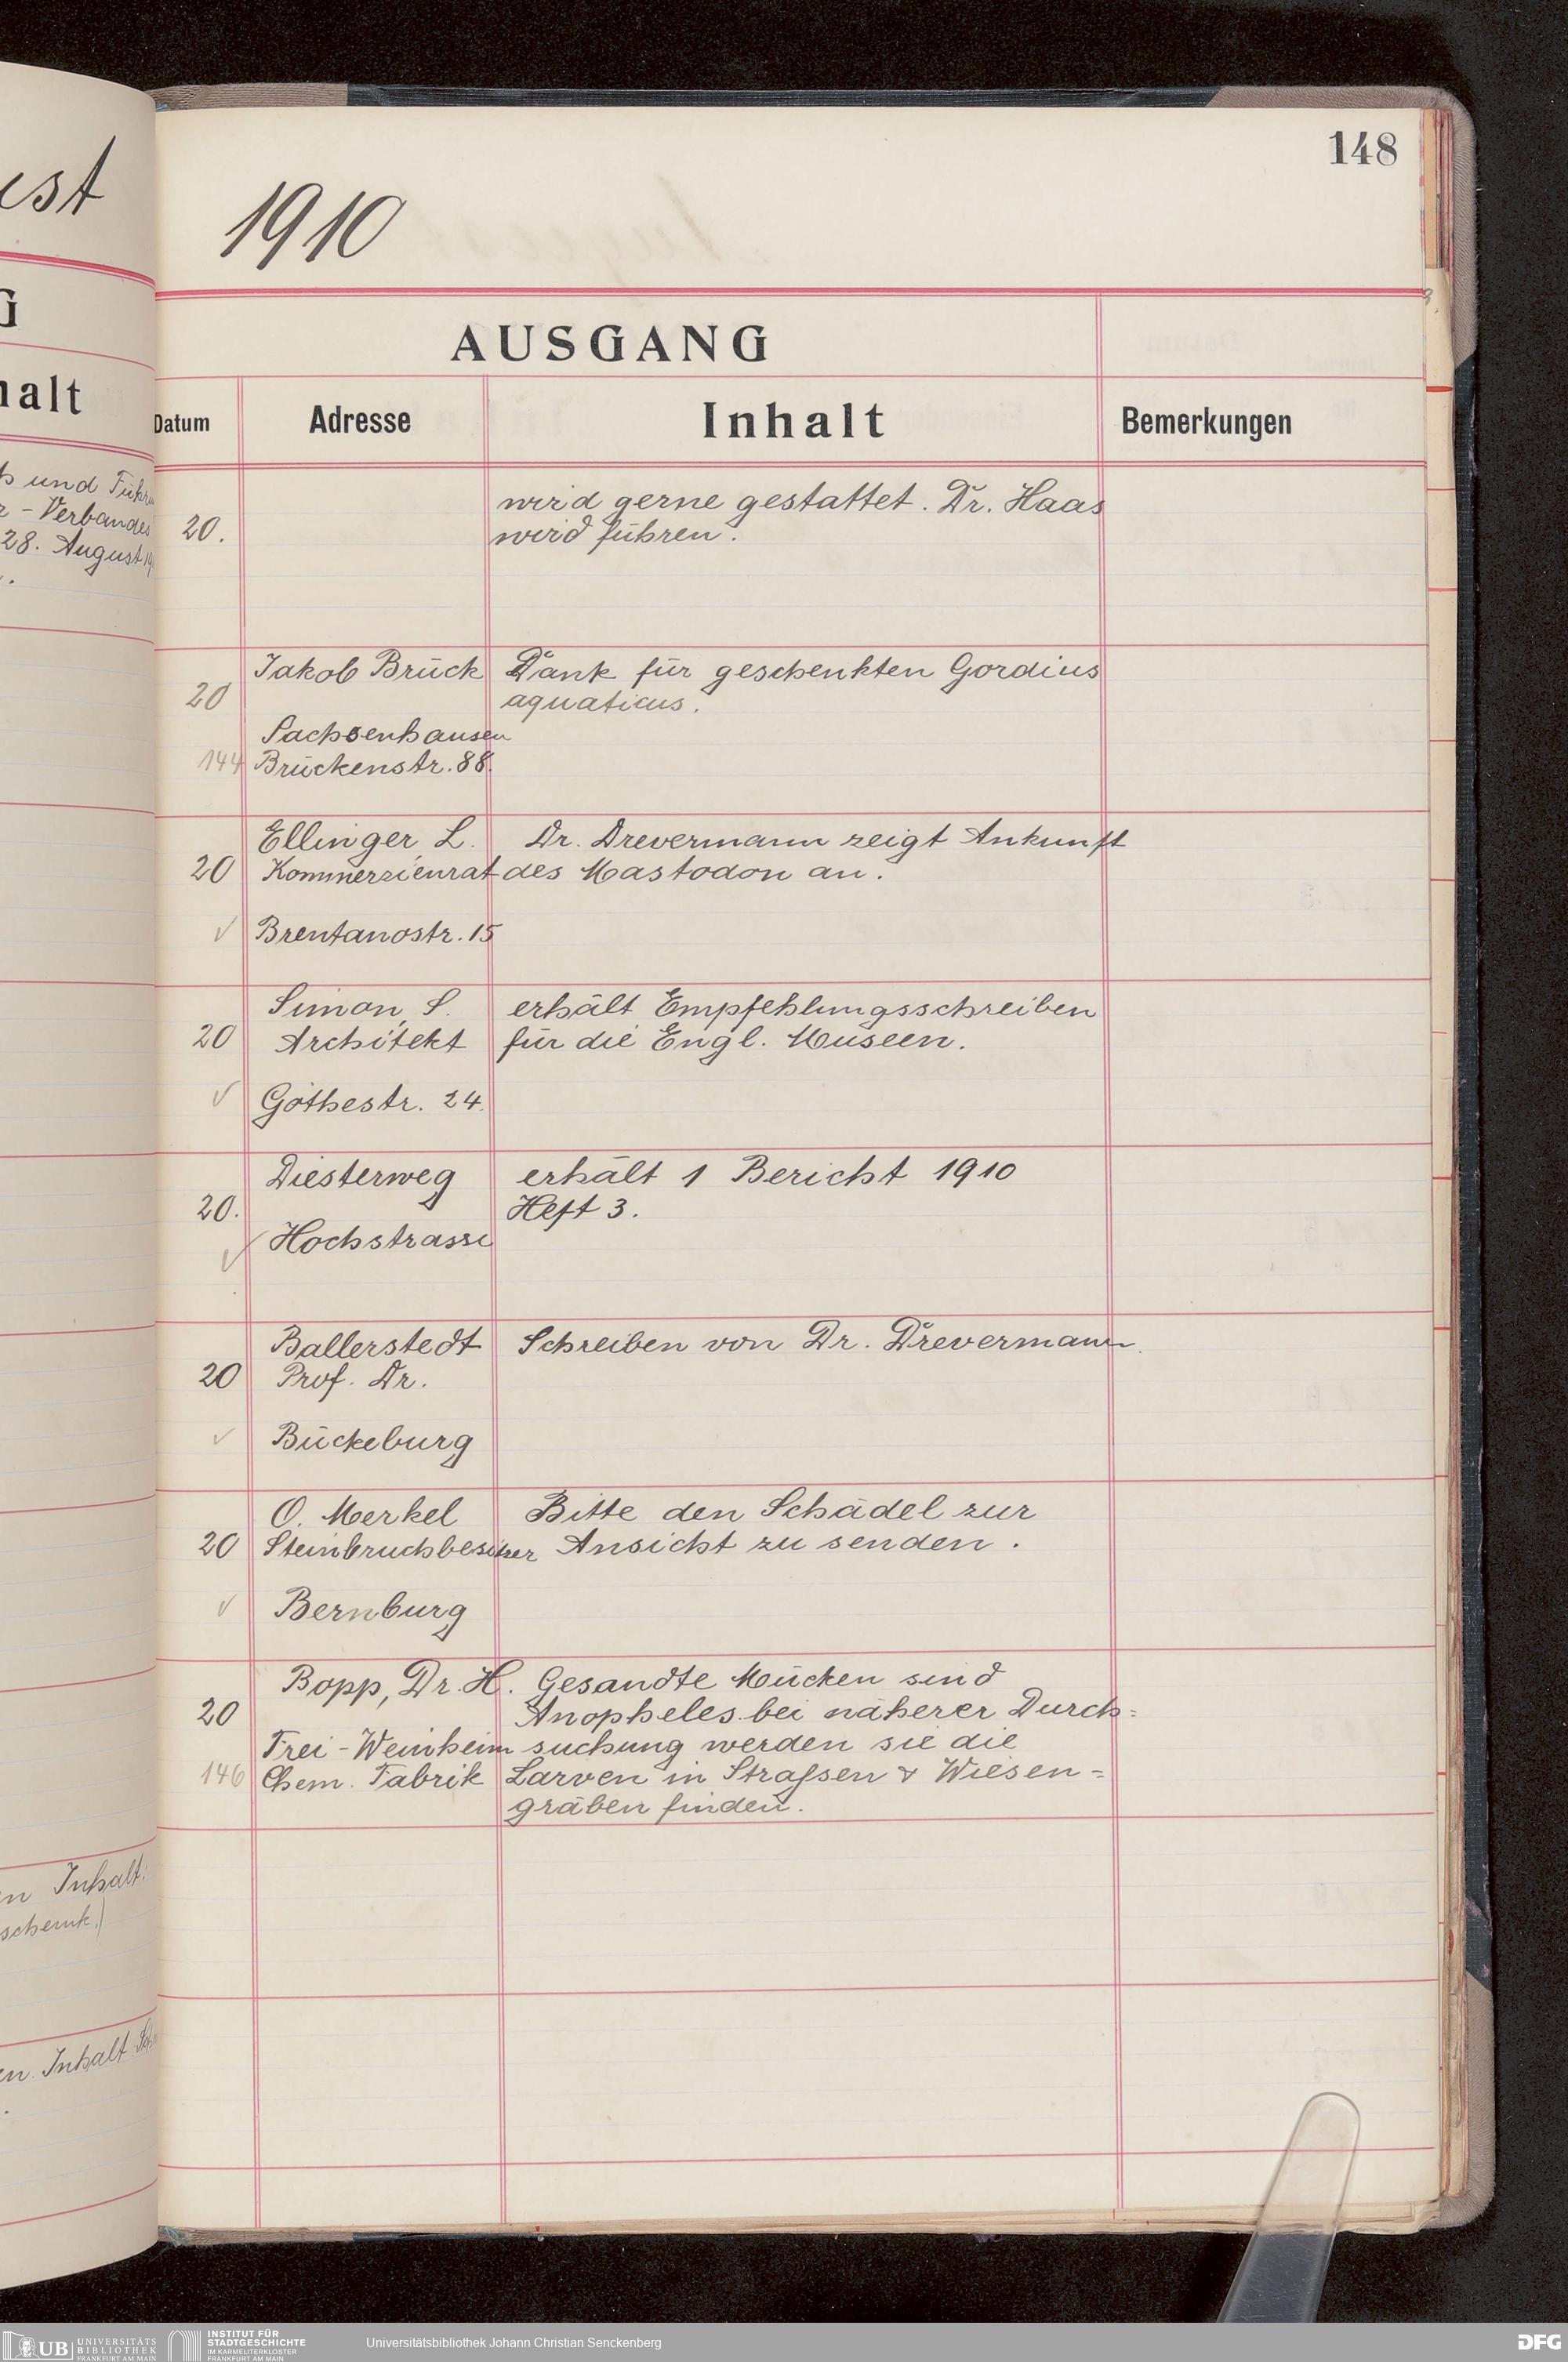 est
G
halt
und Führ
- Verbandes
28. August
n Inhalt:
schenk.)
en. Inhalt
148
1910
AUSGANG
Datum Adresse Inhalt Bemerkungen
wird gerne gestattet. Dr. Haas
20. wird führen.
Jakob Brück Dank für geschenkten Gordius
20 aquaticus.
Sachsenhausen
144 Brückenstr. 88.
Ellinger L. Dr. Drevermann zeigt Ankunft
20 Kommerzienrat des Mastodon an.
✓ Brentanostr. 15
Simon, S. erhält Empfehlungsschreiben
20 Architekt für die Engl. Museen.
✓ Göthestr. 24.
Diesterweg erhält 1 Bericht 1910
20. Heft 3.
✓ Hochstrasse
Ballerstedt Schreiben von Dr. Drevermann.
20 Prof. Dr.
✓ Bückeburg
O. Merkel Bitte den Schädel zur
20 Steinbruchbesitzer Ansicht zu senden.
✓ Bernburg
Bopp, Dr. H. Gesandte Mücken sind
20 Anopheles bei näherer Durch=
Frei-Weinheim suchung werden sie die
146 Chem. Fabrik Larven in Straßen & Wiesen=
gräben finden.
UB UNIVERSITÄTS
BIBLIOTHEK
FRANKFURT AM MAIN
INSTITUT FÜR
STADTGESCHICHTE
IM KARMELITERKLOSTER
FRANKFURT AM MAIN
Universitätsbibliothek Johann Christian Senckenberg
DFG